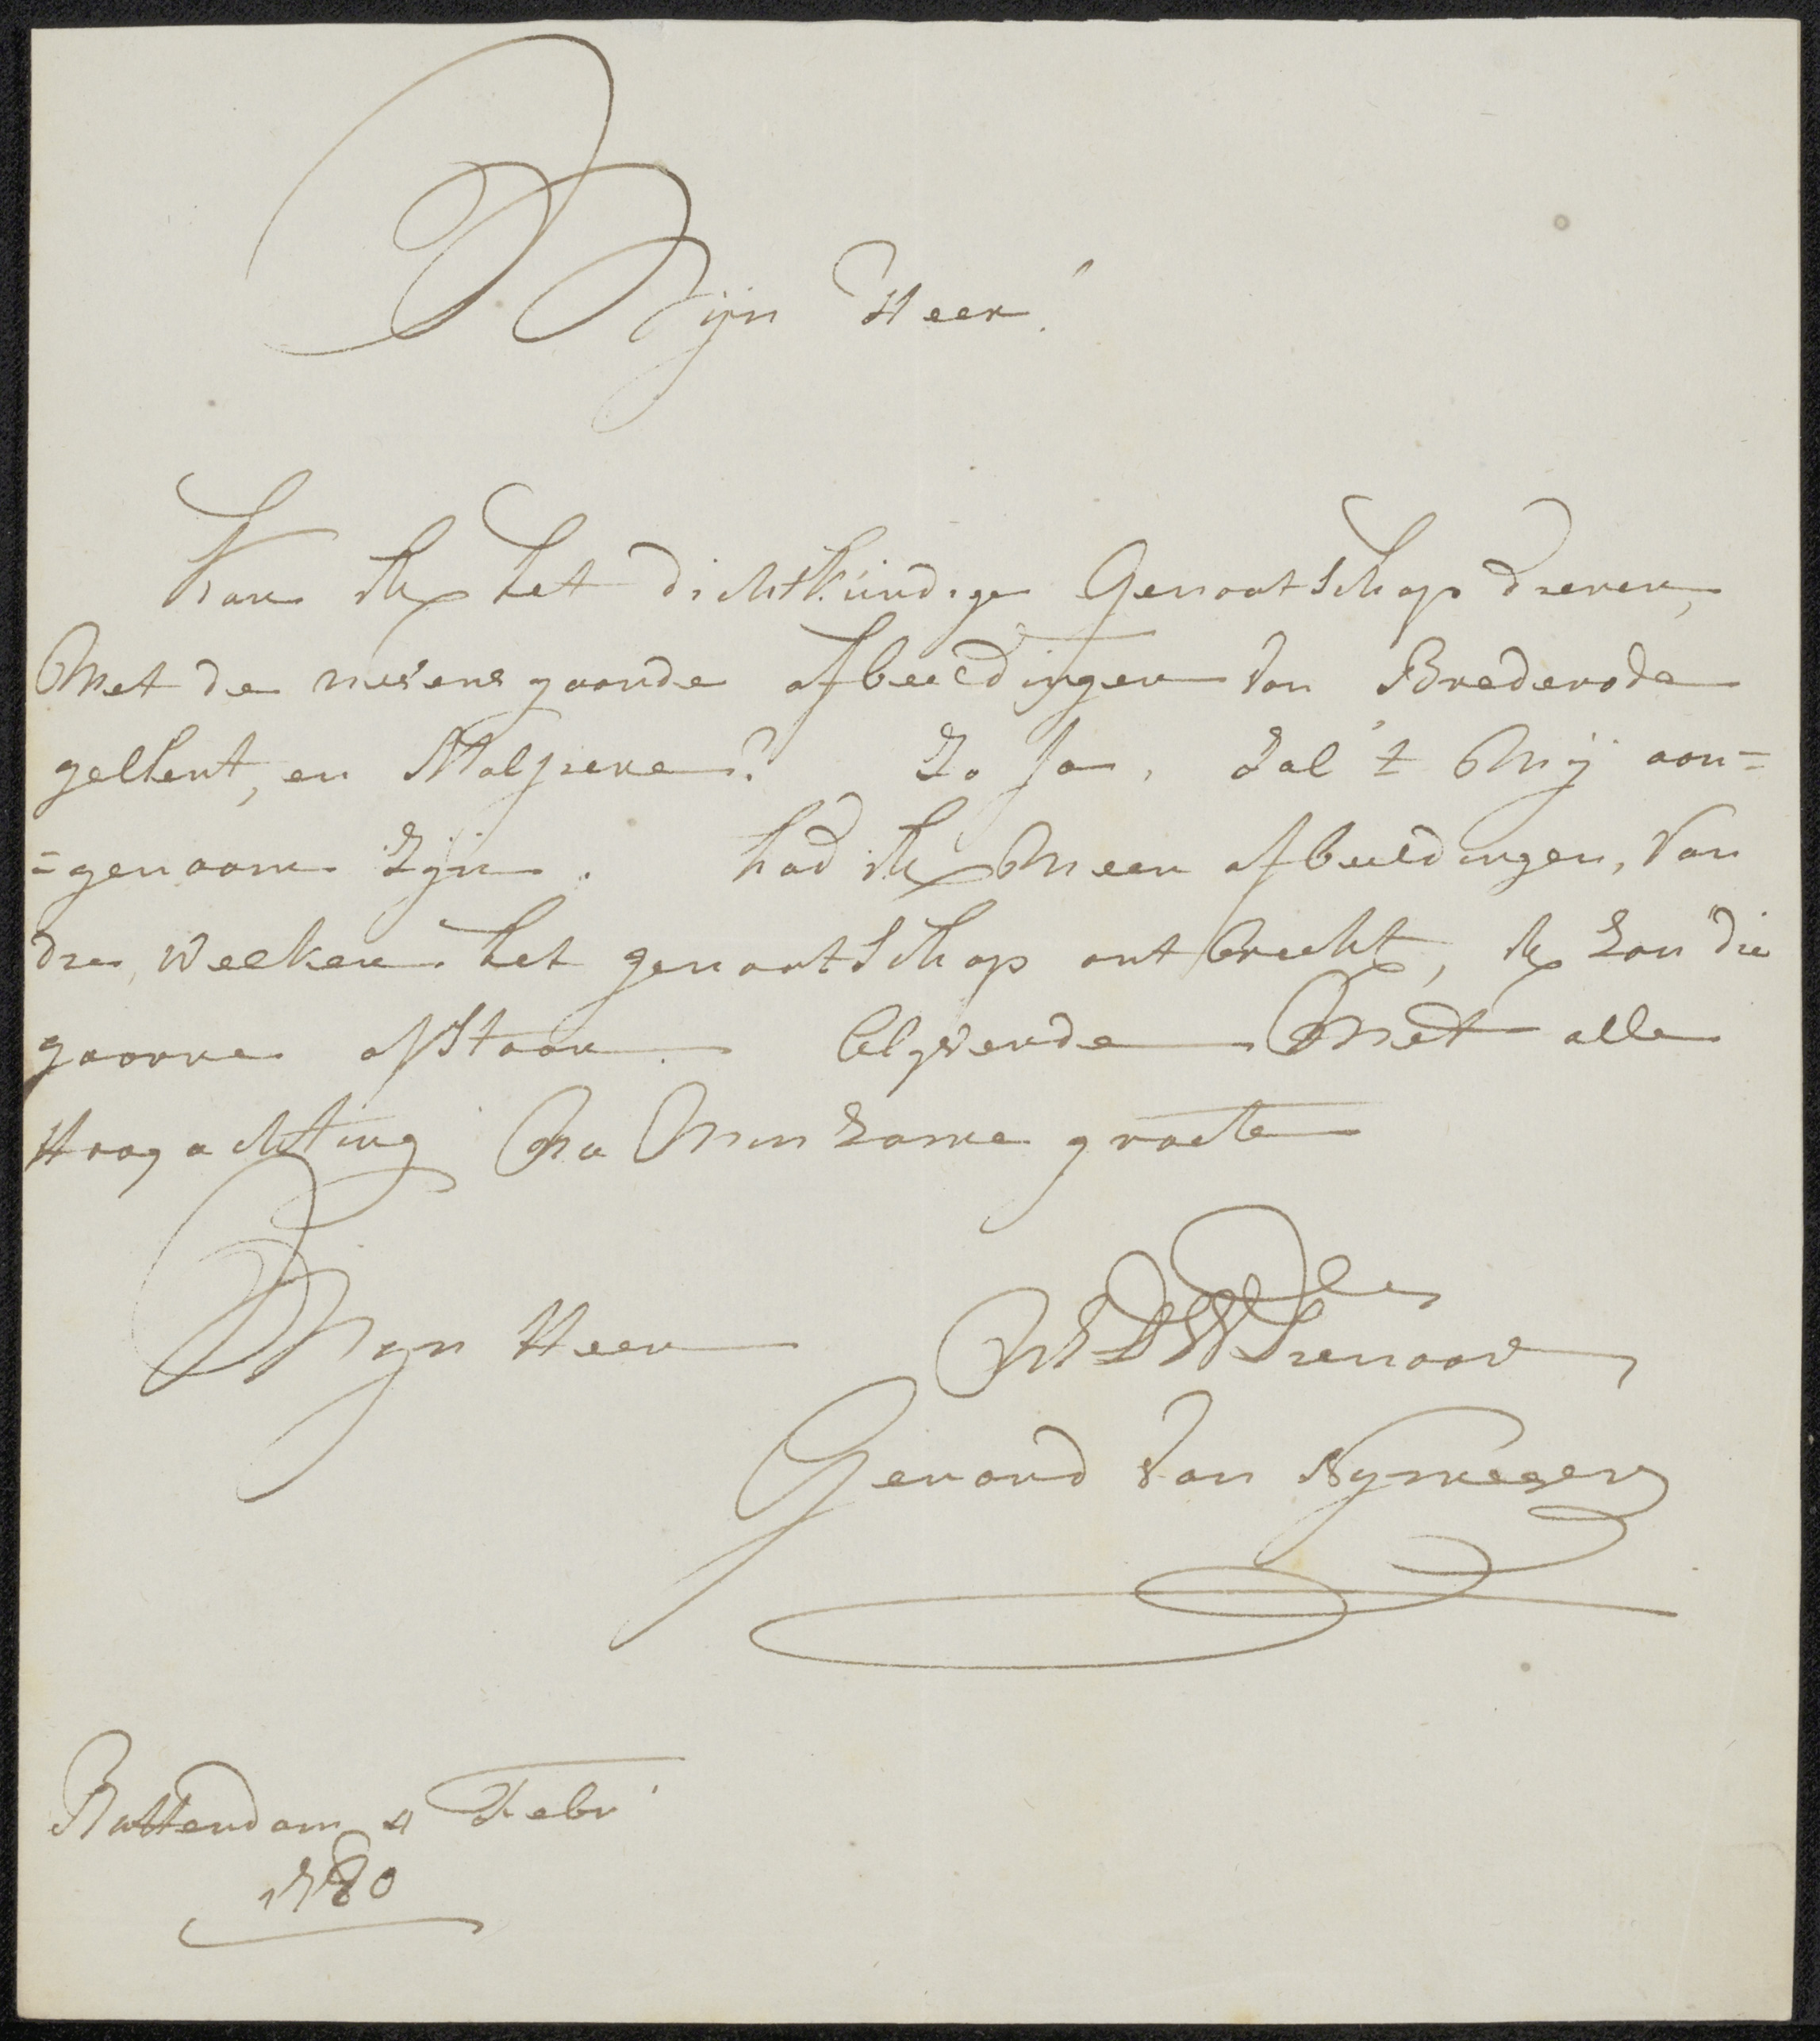 Mijn Heer!
Kan ik het dichtkúndige Genootschap dienen,
Met de nevens gaande afbeeldingen van Brederode
gellert, en Moljere? Zo Ja, Zal 't Mij aan=
=genaam Zijn. had ik Meer afbeeldingen, van
die, Welken het genootschap ontbreekt, ik zou die
gaarne afstaan. blyvende Met alle
Hoogachting Na Minzame groete
Mijn Heer
Dienaar
Gerard Van Nymegen
Rotterdam 4 Febr
1780